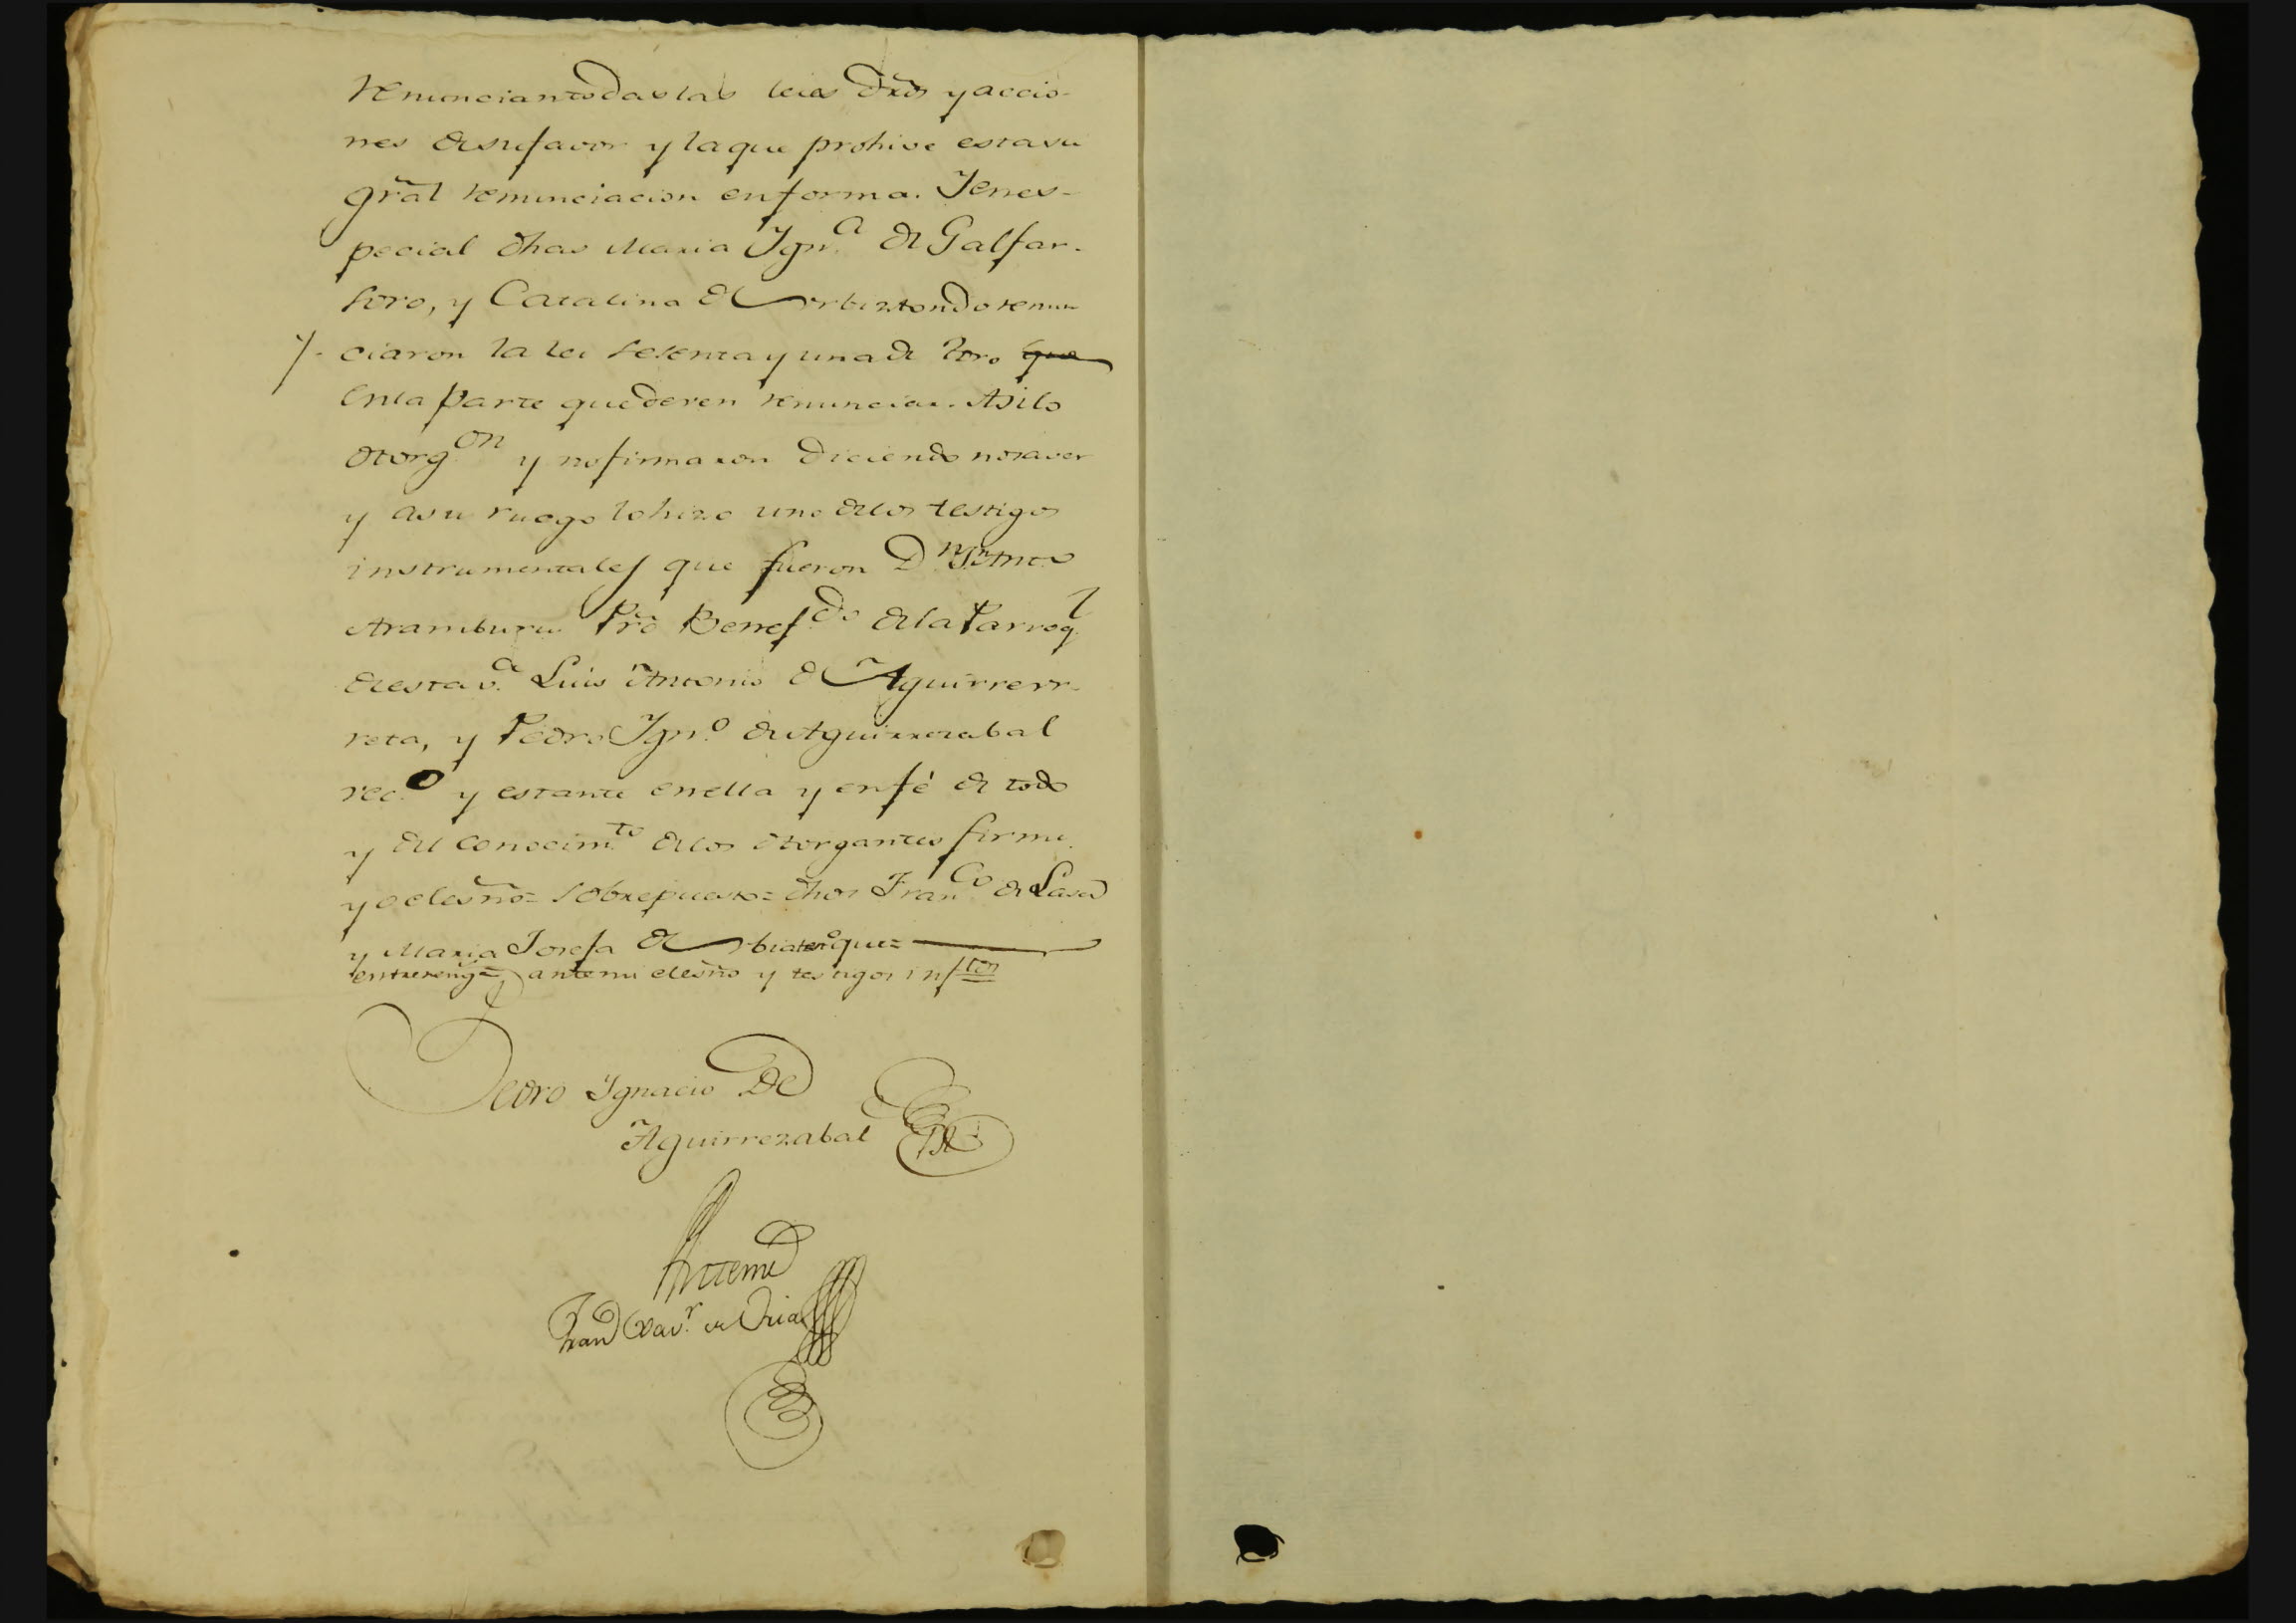 renuncian todas las leies dr̃os y accio-
nes de su favor y la que prohive esta su
gr̃al renunciacion en forma. Y en es-
pecial dhas Maria Ygn.a de Galfar-
soro, y Catalina de Urbiztondo renun
ciaron la lei sesenta y una de toro que
en la parte que deven renunciar. Asi lo
otorg.on y no firmaron diciendo no saver
y a su ruego lo hizo uno de los testigos
instrumentales que fueron D.n
Aramburu Pr̃o Benef.do de la Parroq.l
de esta v.a Luis Antonio de Aguirrerr-
reta, y Pedro Ygn.o de Aguirrezabal
vec.o y estante en ella y en fé de todo
y del conocim.to de los otorgantes firme
yo el esño= sobrepuesto= dhos Fran.co de Lasa
y Maria Josefa de que=
entrereng.s= ante mi el esño y testigos inf.tos
Pedro Ygnacio De
Aguirrezabal
Antemi
Fran.co Xav.r de Oria